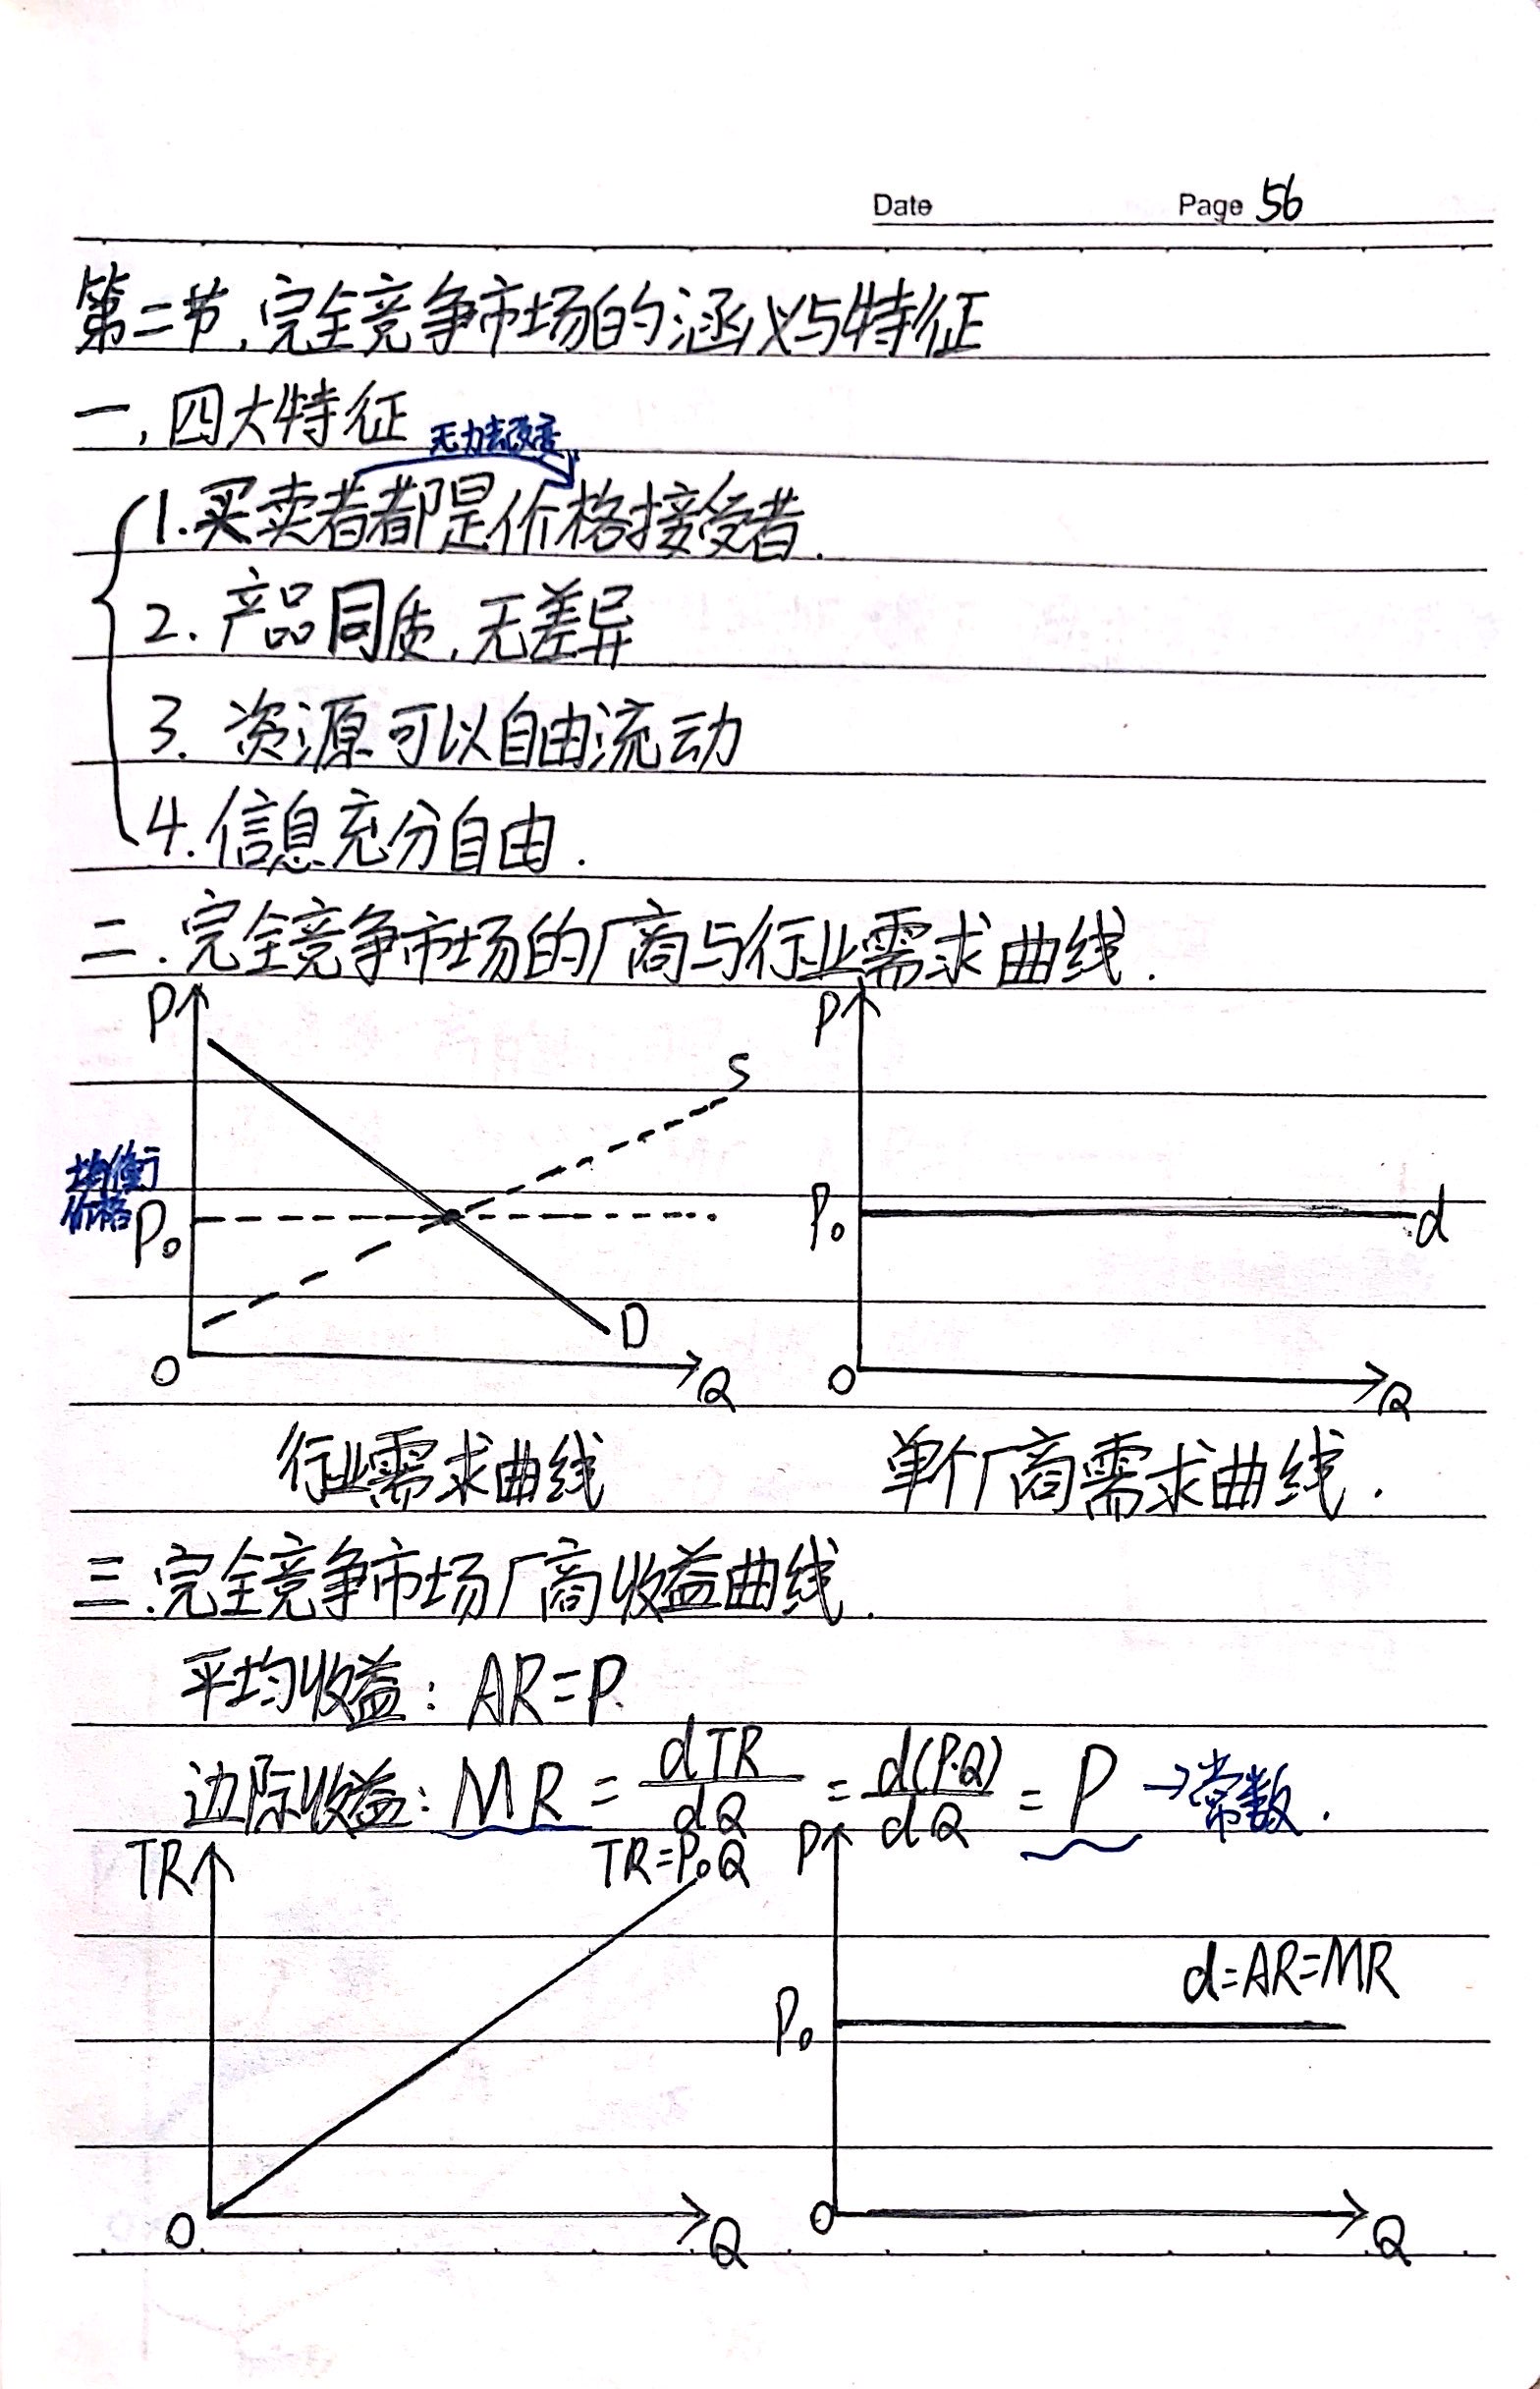 Date Page 56
第二节.完全竞争市场的涵义与特征
一.四大特征
无力去改变
1.买卖者都是价格接受者.
2.产品同质,无差异
3.资源可以自由流动
4.信息充分自由.
二.完全竞争市场的厂商与行业需求曲线.
P P
S
均衡
价格
P₀ P₀ d
D
O Q O Q
行业需求曲线 单个厂商需求曲线.
三.完全竞争市场厂商收益曲线.
平均收益: AR=P.
边际收益: MR = dTR/dQ = d(P·Q)/dQ = P →常数.
TR TR=P₀Q P
d=AR=MR
P₀
O Q O Q